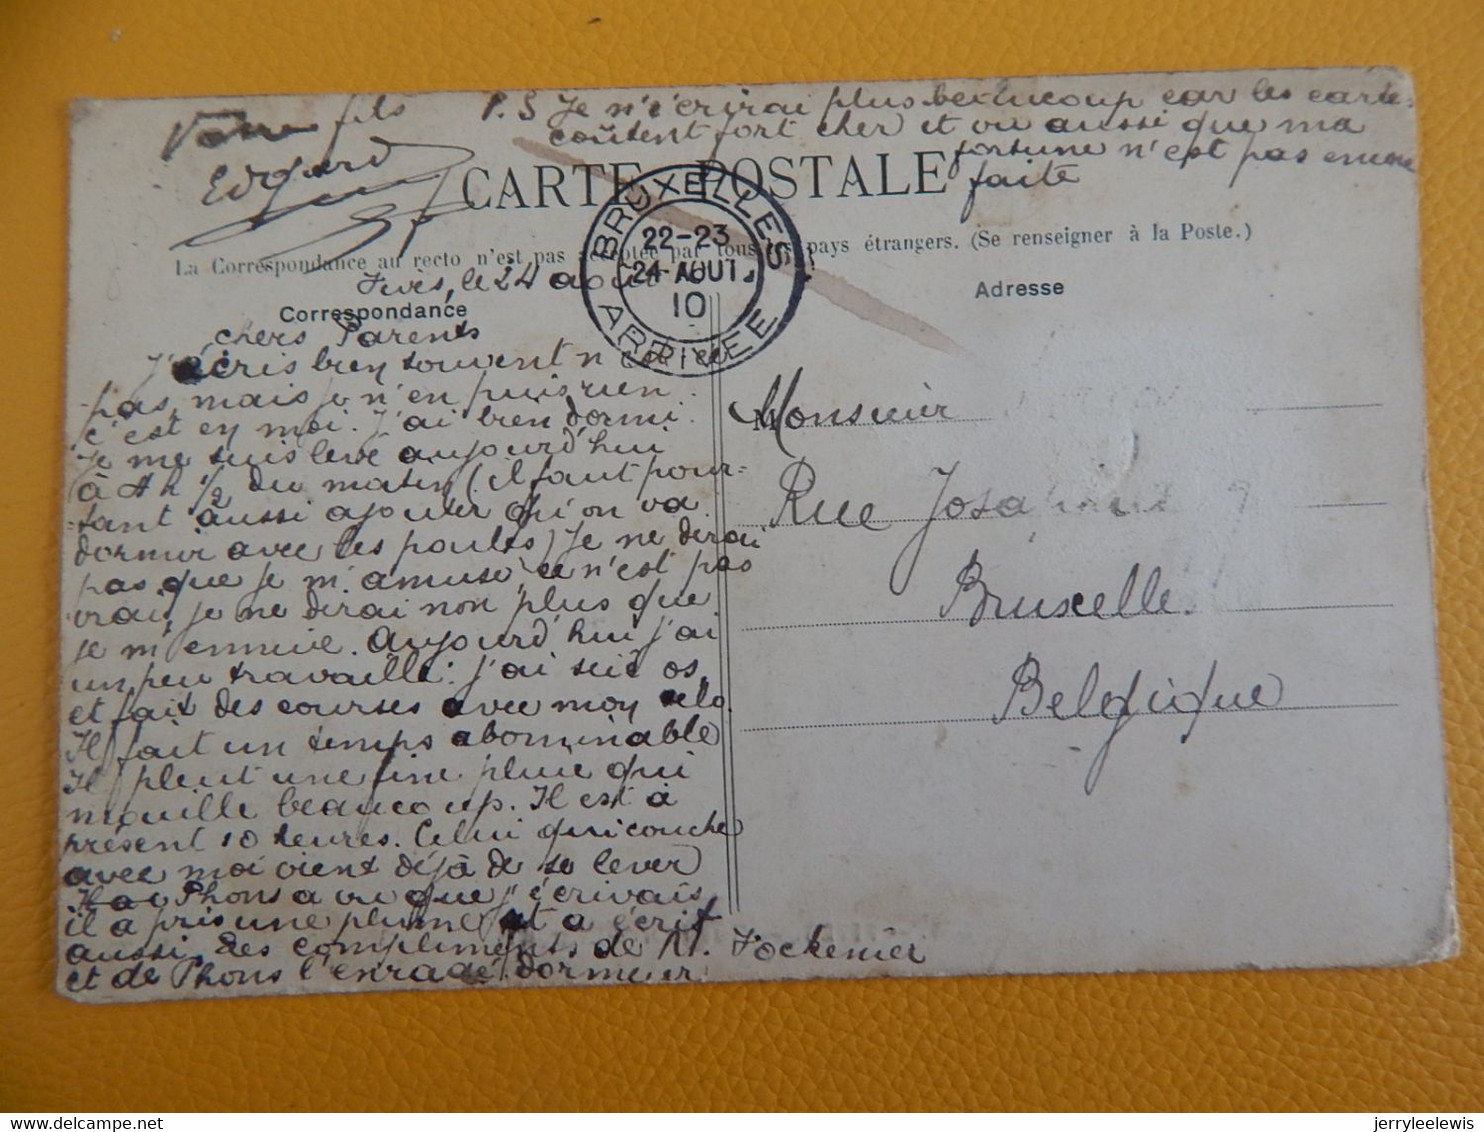 Votre fils
Edgard
P.S Je n'écrirai plus beaucoup car les carte-
coûtent fort cher et vu aussi que ma
fortune n'est pas encore
faite
CARTE POSTALE
La Correspondance au recto n'est pas acceptée par tous les pays étrangers. (Se renseigner à la Poste.)
BRUXELLES
22-23
24 AOUT
10
ARRIVEE
Fives, le 24 août
Correspondance
Adresse
chers Parents
J'écris bien souvent n'est ce
pas, mais je n'en puis rien
c'est en moi. J'ai bien dormi.
Je me suis levé aujourd'hui
à 4 h 1/2 du matin (il faut pour-
tant aussi ajouter qu'on va
dormir avec les poules) Je ne dirai
pas que je m'amuse, ce n'est pas
vrai, je ne dirai non plus que
je m'ennuie. Aujourd'hui j'ai
un peu travaillé: j'ai scié os
et fait des courses avec mon velo.
Il fait un temps abominable
Il pleut une fine pluie qui
mouille beaucoup. Il est à
présent 10 heures. Celui qui couche
avec moi vient déjà de se lever
Il a Phons a vu que j'écrivais
il a pris une plume et a écrit
aussi. Des compliments de M. Fockenier
et de Phons l'enragé dormeur
Monsieur
Rue Josaphat
Bruxelles
Belgique
jerryleelewis